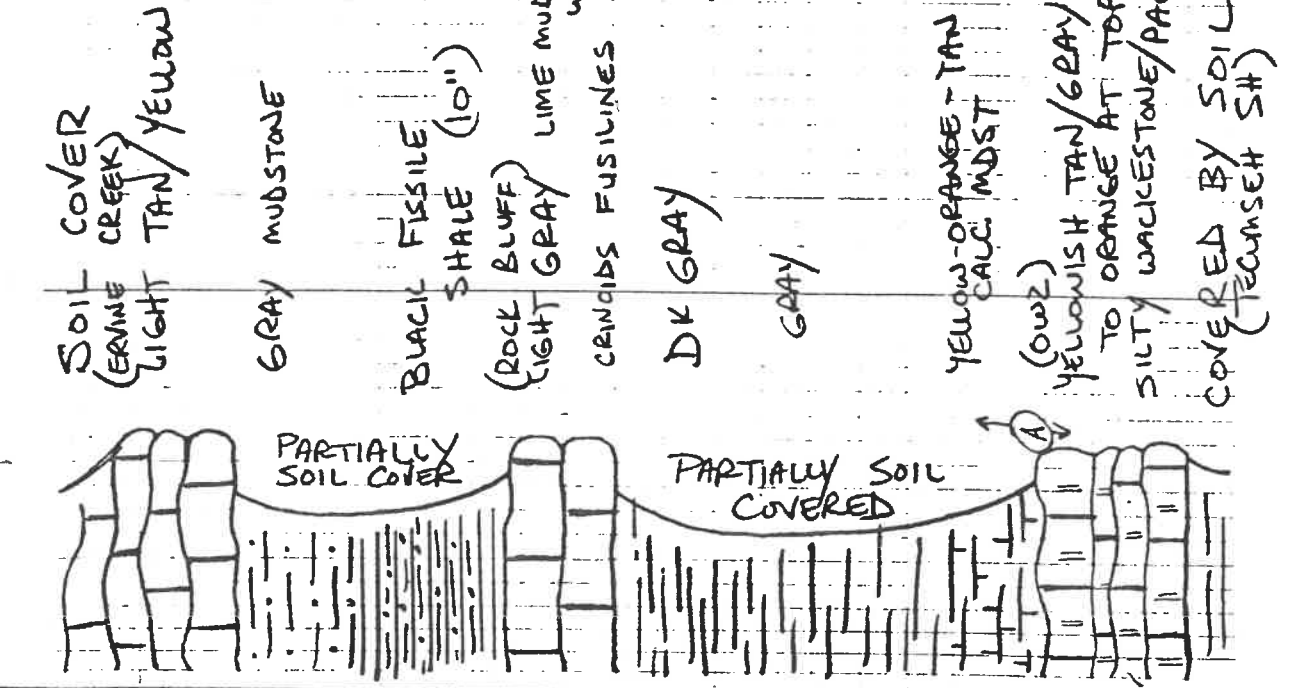 SOIL COVER
(ERVINE CREEK)
LIGHT TAN/YELLOW
GRAY MUDSTONE
BLACK FISSILE
SHALE (10")
(ROCK BLUFF)
LIGHT GRAY LIME MUD
CRINOIDS FUSILINES
DK GRAY
GRAY
YELLOW-ORANGE-TAN
CALC. MDST
(OWZ)
YELLOWISH TAN/GRAY/
TO ORANGE AT TOP
SILTY WACKESTONE/PAC
COVERED BY SOIL
(TECUMSEH SH)
PARTIALLY
SOIL COVER
PARTIALLY SOIL
COVERED
A